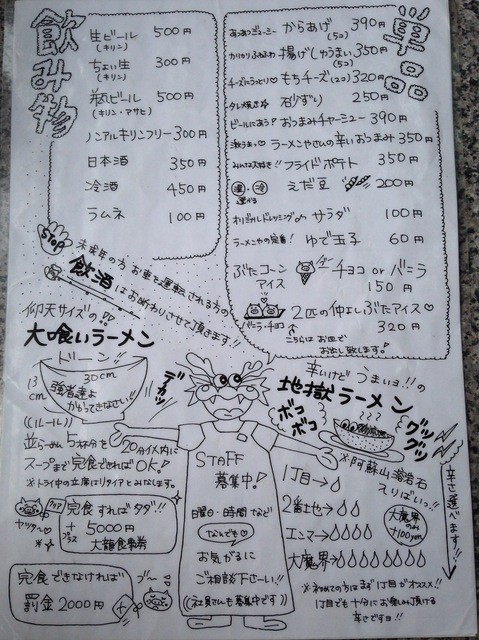 飲み物
生ビール 500円
(キリン)
ちょい生 300円
(キリン)
瓶ビール 500円
(キリン・アサヒ)
ノンアルキリンフリー 300円
日本酒 350円
冷酒 450円
ラムネ 100円
単品
あつあつジューシー からあげ(5コ) 390円
カリカリふわふわ 揚げしゅうまい(5コ) 350円
チーズにうっとり♡ もちチーズ(2コ) 320円
タレ焼き 砂ずり 250円
ビールにあう? おつまみチャーシュー 390円
激うまっ♡ ラーメンやさんの辛いおつまみ 350円
みんな大好き!! フライドポテト 350円
温・冷 選べる えだ豆 200円
オリジナルドレッシング on サラダ 100円
ラーメンやの定番! ゆで玉子 60円
ぶたコーンアイス チョコ or バニラ
150円
2匹の仲よしぶたアイス♡
バニラ・チョコ 320円
こちらはお皿で
お出し致します!
STOP
未成年の方 お車を運転される方の
飲酒はお断りさせて頂きます!!
仰天サイズの!!
大喰いラーメン
ドーン!!
30cm
13cm
強者達よ
かかってきなさい!!
デカッ
((ルール))
並らーめん 5杯分を 20分以内に
スープまで完食できればOK!
※トイ中の立席はリタイアとみなします。
完食すればタダ!!
+
プラス
5000円
大龍食事券
ヤリタ〜♡
完食できなければ
罰金2000円
ブ〜
STAFF
募集中!
日曜日・時間など
なんでも♡
お気がるに
ご相談下さーい!!
((社員さんも募集中です))
辛いけど うまいヨ!!の
地獄ラーメン
ボコ
ボコ
グツ
グツ
※阿蘇山溶岩石
えりばいっ!!
1丁目→
2番土也→
エンマ→
大魔界→
大魔界のみ
+100yen
辛さ選べます!!
※初めての方はまず1丁目がオススメ!!
1丁目でも十分にお楽しみ頂ける
辛さですヨ!!